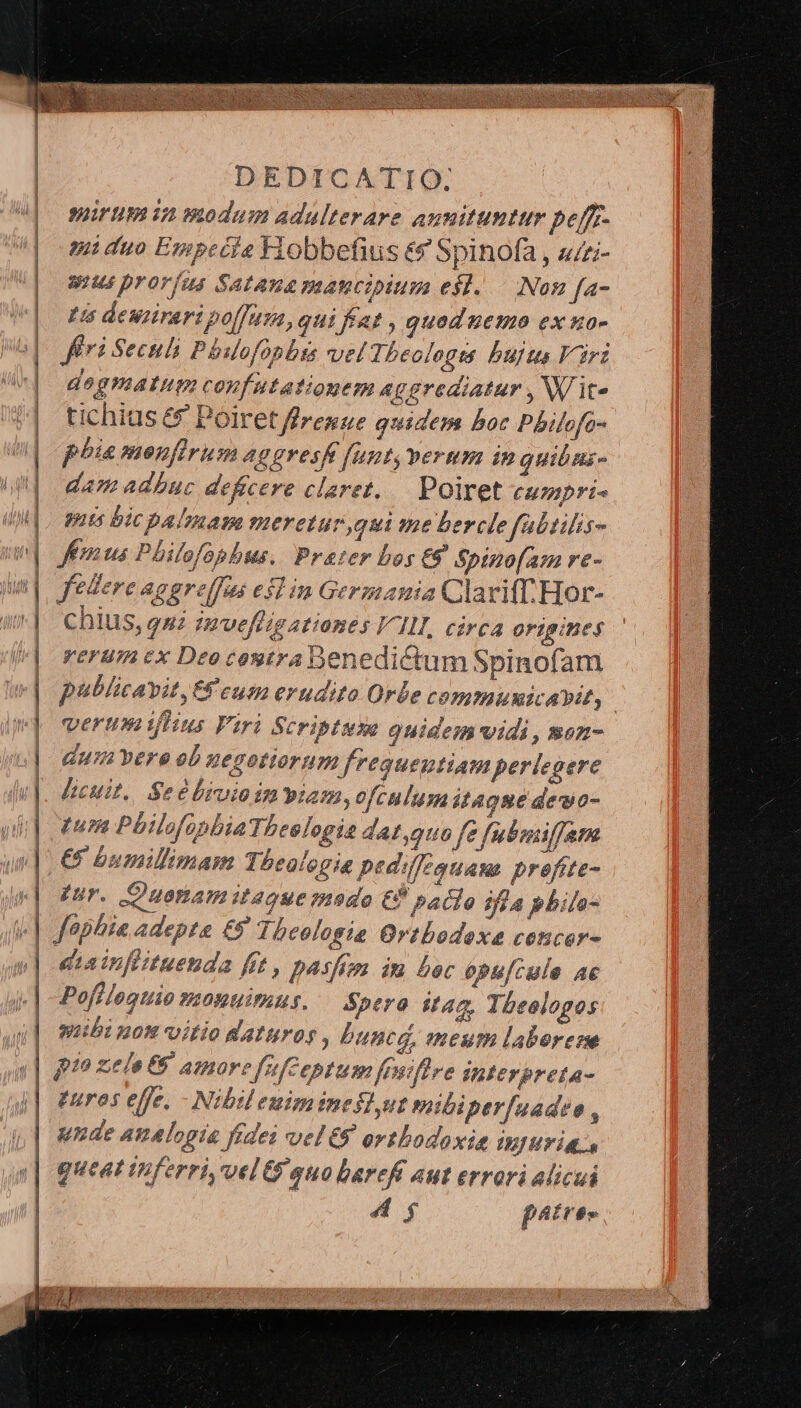 DEDICATIO.
mirum in modum adulterare annituntur pessi-
mi duo Empectæ Hobbesius & Spinosa, ulti-
mus prorsus Satanæ mancipium est. Non sa-
tis demirari possum, qui fiat, quod nemo ex no-
stri Seculi Philosophis vel Theologis hujus Viri
dogmatum confutationem aggrediatur, Wit-
tichius & Poiret strenue quidem hoc Philoso-
phiæ monstrum aggressi sunt, verum in quibus-
dam adhuc deficere claret. Poiret cumpri-
mis hic palmam meretur, qui me hercle subtilis-
simus Philosophus. Præter hos & Spinosam re-
fellere aggressus est in Germania Clariss. Hor-
chius, qui investigationes VIII, circa origines
rerum ex Deo contra Benedictum Spinosam
publicavit, & cum erudito Orbe communicavit,
verum istius Viri Scriptum quidem vidi, non-
dum vero ob negotiorum frequentiam perlegere
licuit. Se è bivio in viam, osculum itaque devo-
tum Philosophia Theologiæ dat, quo se submissam
& humillimam Theologiæ pedissequam profite-
tur. Quonam itaque modo & pacto ista philo-
sophia adepta & Theologia Orthodoxa concor-
dia instituenda sit, passim in hoc opusculo ac
Postloquio monuimus. Spero itaq; Theologos
mihi non vitio daturos, huncq; meum laborem
pio zelo & amore susceptum sinistre interpreta-
turos esse. Nihil enim inest, ut mihi persuadeo,
unde analogiæ fidei vel & orthodoxiæ injuria
queat inferri, vel & quo hæresi aut errori alicui
A 5 patro-